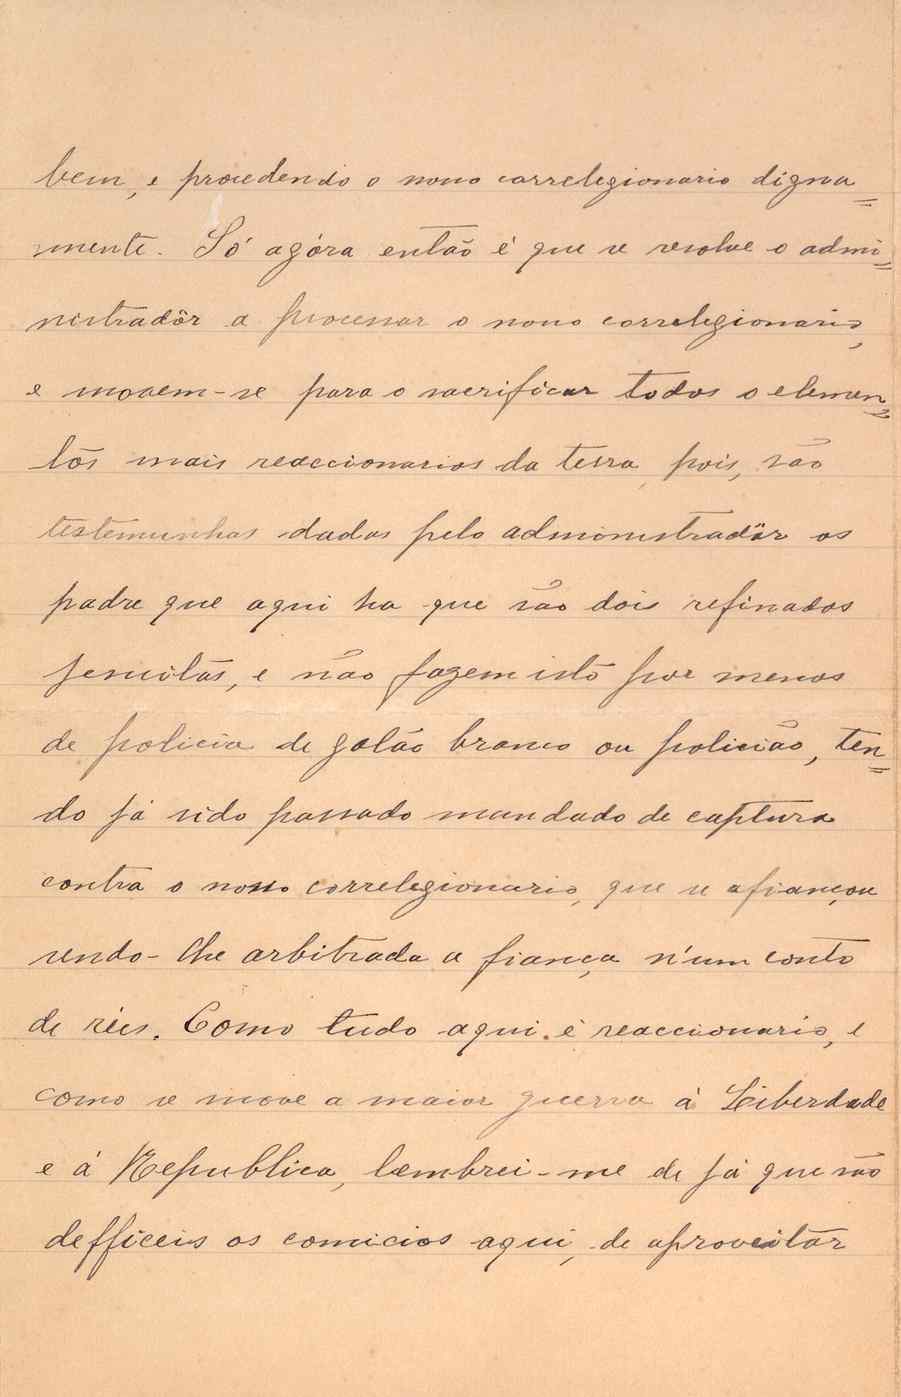 bem, e procedendo o nosso correlegionario digna=
mente. Só agóra então é que se resolve o admi=
nistradôr a processar o nosso correlegionario,
e movem-se para o sacrificar todos o elemen=
tos mais reaccionarios da terra, pois, são
testemunhas dadas pelo administradôr os
padre que aqui ha que são dois refinados
jesuitas, e não fazem isto por menos
de policia de galão branco ou policião, ten=
do já sido passado mandado de captura
contra o nosso correlegionario, que se afiançou
sendo-lhe arbitrada a fiança n'um conto
de réis. Como tudo aqui é reaccionario, e
como se move a maior guerra á Leiberdade
e á Republica, lembrei-me de já que são
defficeis os comicios aqui, de aproveitar